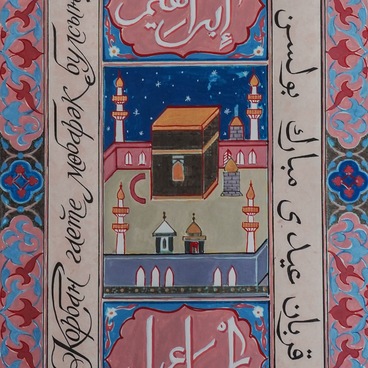 إبراهيم
Корбан гаете мөбарәк булсын
قربان عيدى مبارك بولسن
إسماعيل